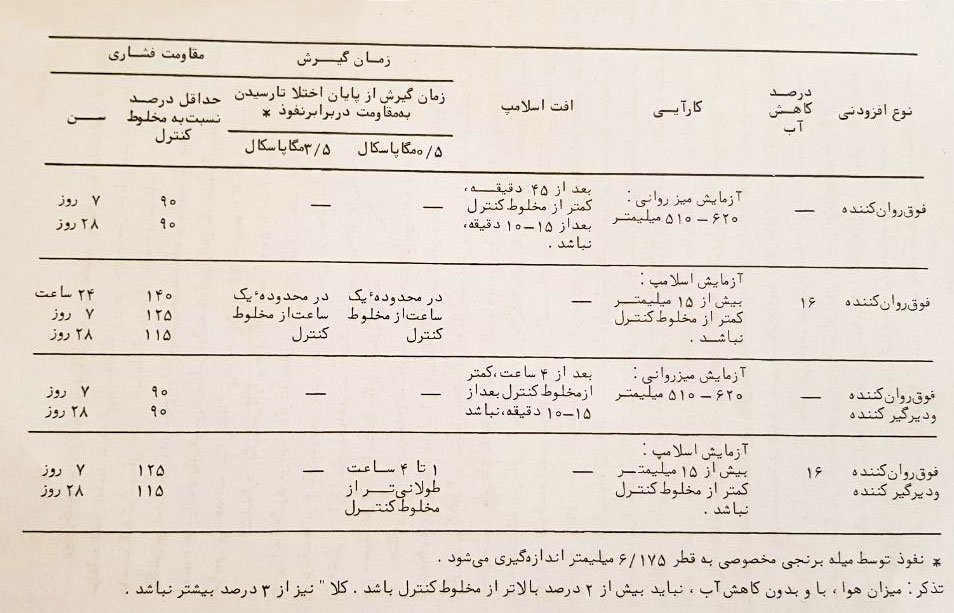 نوع افزودنی	درصد کاهش آب	کارآیی	افت اسلامپ	زمان گیرش	مقاومت فشاری
زمان گیرش از پایان اختلا تارسیدن به‌مقاومت دربرابرنفوذ *	حداقل درصد نسبت‌به مخلوط کنترل	سن
۰/۵ مگاپاسکال	۳/۵مگاپاسکال
فوق‌روان‌کننده	—	آزمایش میز روانی :	بعد از ۴۵ دقیقه ،	—	—	۹۰	۷ روز
۵۱۰ – ۶۲۰ میلیمتر	کمتر از مخلوط کنترل	۹۰	۲۸ روز
بعداز ۱۵–۱۰ دقیقه،
نباشد .
فوق‌روان‌کننده	۱۶	آزمایش اسلامپ :	—	در محدودهٔ یک	در محدودهٔ یک	۱۴۰	۲۴ ساعت
بیش از ۱۵ میلیمتر	ساعت‌از مخلوط	ساعت‌از مخلوط	۱۲۵	۷ روز
کمتر از مخلوط کنترل	کنترل	کنترل	۱۱۵	۲۸ روز
نباشد .
فوق‌روان‌کننده	—	آزمایش میزروانی :	بعد از ۴ ساعت،کمتر	—	—	۹۰	۷ روز
ودیرگیر کننده	۵۱۰ – ۶۲۰ میلیمتر	ازمخلوط کنترل بعداز	۹۰	۲۸ روز
۱۵–۱۰ دقیقه،نباشد
فوق‌روان‌کننده	۱۶	آزمایش اسلامپ :	—	۱ تا ۴ ساعت	—	۱۲۵	۷ روز
ودیرگیر کننده	بیش از ۱۵ میلیمتر	طولانی‌تر از	۱۱۵	۲۸ روز
کمتر از مخلوط کنترل	مخلوط کنترل
نباشد .
* نفوذ توسط میله برنجی مخصوصی به قطر ۶/۱۷۵ میلیمتر اندازه‌گیری می‌شود .
تذکر : میزان هوا ، با و بدون کاهش آب ، نباید بیش از ۲ درصد بالاتر از مخلوط کنترل باشد . کلا " نیز از ۳ درصد بیشتر نباشد .